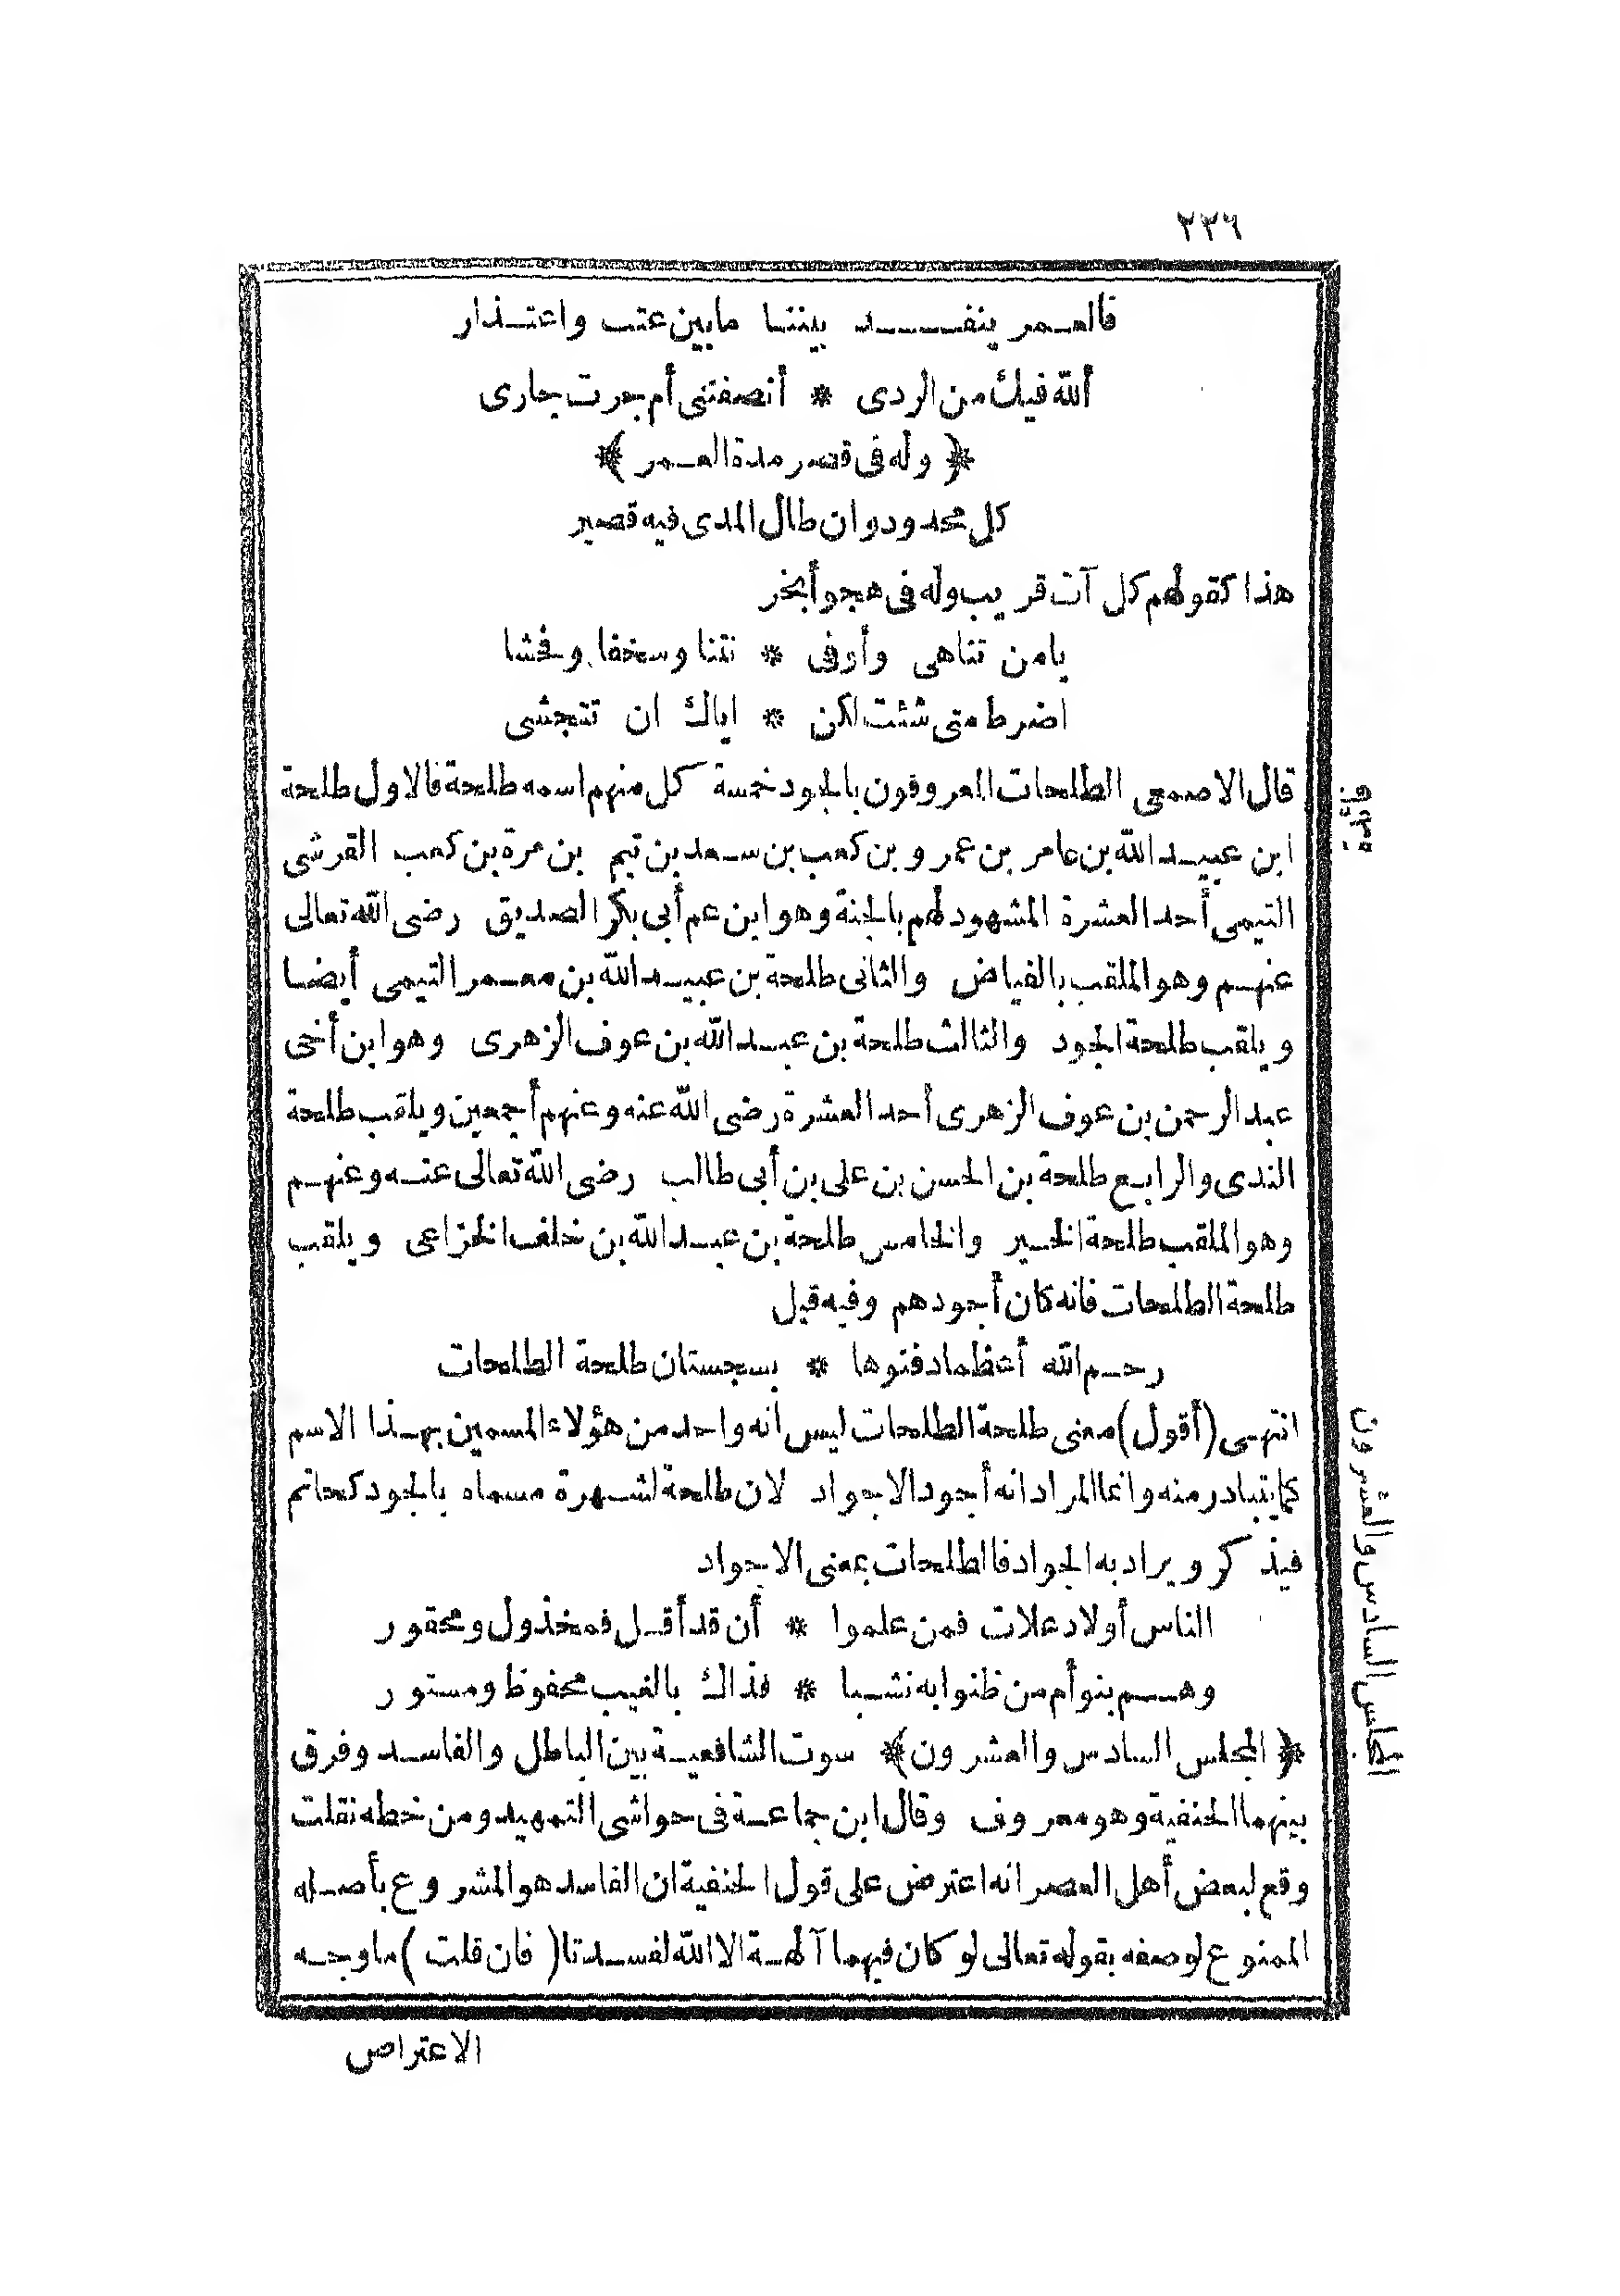 ٢٣٦
فالعمر ينفد بيننا ما بين عتب واعتذار
ألله فيك من الردى * أنصفتني أم جرت جارى
﴿ وله فى قصر مدة العمر ﴾
كل محدود وان طال المدى فيه قصير
هذا كقولهم كل آت قريب وله فى هجو أبخر
يا من تناهى وأوفى * نتنا وسخفا وفحشا
اضرط متى شئت لكن * اياك ان تتجشى
قال الاصمعى الطلحات المعروفون بالجود خمسة كل منهم اسمه طلحة فالاول طلحة
ابن عبيد الله بن عامر بن عمرو بن كعب بن سعد بن تيم بن مرة بن كعب القرشى
التيمى أحد العشرة المشهود لهم بالجنة وهو ابن عم أبى بكر الصديق رضى الله تعالى
عنهم وهو الملقب بالفياض والثانى طلحة بن عبيد الله بن معمر التيمى أيضا
ويلقب طلحة الجود والثالث طلحة بن عبد الله بن عوف الزهرى وهو ابن أخى
عبد الرحمن بن عوف الزهرى أحد العشرة رضى الله عنه وعنهم أجمعين ويلقب طلحة
الندى والرابع طلحة بن الحسن بن على بن أبى طالب رضى الله تعالى عنه وعنهم
وهو الملقب طلحة الخير والخامس طلحة بن عبد الله بن خلف الخزاعى ويلقب
طلحة الطلحات فانه كان أجودهم وفيه قيل
رحم الله أعظما دفنوها * بسجستان طلحة الطلحات
انتهى (أقول) معنى طلحة الطلحات ليس انه واحد من هؤلاء المسمين بهذا الاسم
كما يتبادر منه وانما المراد انه أجود الاجواد لان طلحة لشهرة مسماه بالجود كحاتم
فيذكر ويراد به الجواد فالطلحات بمعنى الاجواد
الناس أولاد علات فمن علموا * أن قد أقل فمخذول ومحقور
وهم بنو أم من ظنوا به نشبا * فذاك بالغيب محفوظ ومستور
﴿ المجلس السادس والعشرون﴾ سوت الشافعية بين الباطل والفاسد وفرق
بينهما الحنفية وهو معروف وقال ابن جماعة فى حواشى التمهيد ومن خطه نقلت
وقع لبعض أهل العصر انه اعترض على قول الحنفية ان الفاسد هو المشروع بأصله
الممنوع لوصفه بقوله تعالى لو كان فيهما آلهة الا الله لفسدتا (فان قلت) ما وجه
الاعتراض
المجلس السادس والعشرون